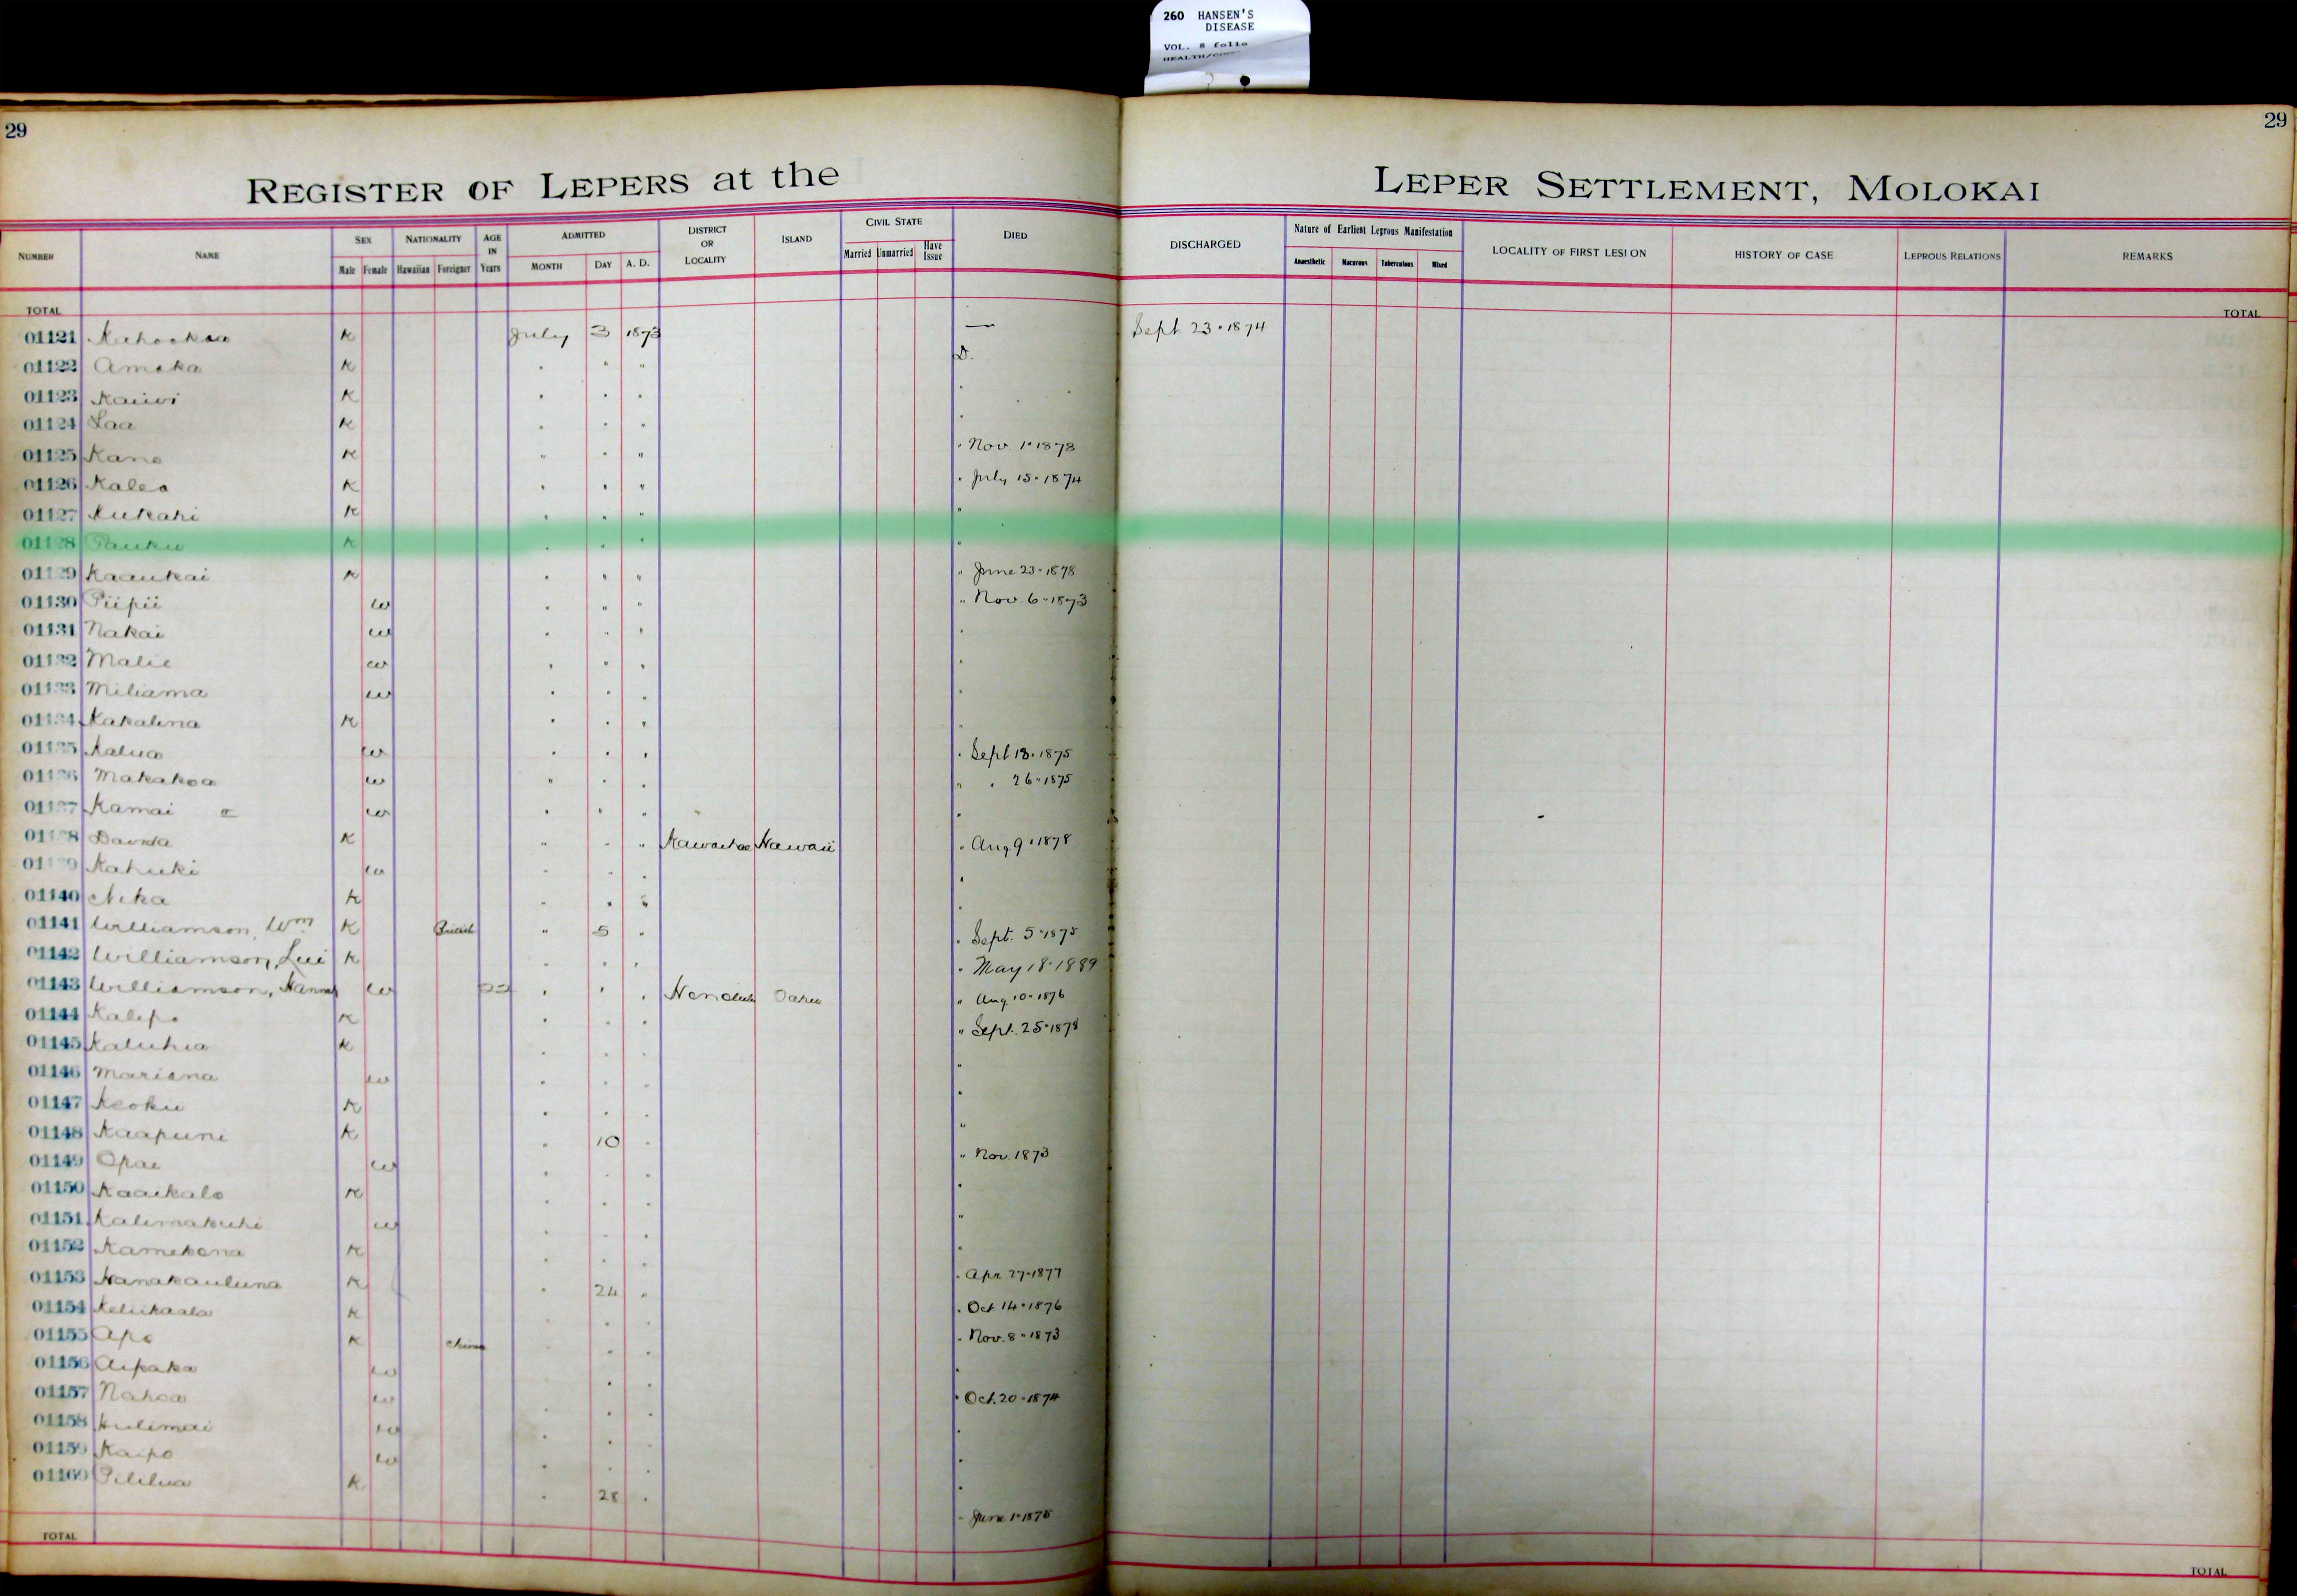 260 HANSEN'S
DISEASE
VOL. 8 folio
29
29
REGISTER OF LEPERS at the LEPER SETTLEMENT, MOLOKAI
NUMBER NAME SEX NATIONALITY AGE IN ADMITTED DISTRICT OR LOCALITY ISLAND CIVIL STATE DIED DISCHARGED Nature of Earliest Leprous Manifestation LOCALITY OF FIRST LESION HISTORY OF CASE LEPROUS RELATIONS REMARKS
Male Female Hawaiian Foreigner Years MONTH DAY A. D. Married Unmarried Have Issue Anaesthetic Macurous Tuberculous Mixed
TOTAL TOTAL
01121 K July 3 1873 — Sept 23 · 1874
01122 Amaka K " " " D.
01123 Kaiwi K " " " "
01124 Laa K " " " "
01125 Kane K " " " " Nov. 1 · 1878
01126 Kalea K " " " " July 15 · 1874
01127 Kukahi K " " " "
01128 Pauku K " " " "
01129 Kaaukai K " " " " June 23 · 1878
01130 Piipii w " " " " Nov. 6 · 1873
01131 Nakai w " " " "
01132 Malie w " " " "
01133 Miliama w " " " "
01134 Kakalina K " " " "
01135 Kalua w " " " " Sept 18 · 1875
01136 Makakoa w " " " " " 26 · 1875
01137 Kamai w " " " "
01138 K " " " Kawaihae Hawaii " Aug 9 · 1878
01139 Kahuki w " " " "
01140 Nika K " " " "
01141 Williamson, Wm K British " 5 " " Sept. 5 · 1875
01142 Williamson, Lui K " " " " May 18 · 1889
01143 Williamson, Hannah w " " " Honolulu Oahu " Aug. 10 · 1876
01144 Kalepo K " " " " Sept. 25 · 1878
01145 Kaluhia K " " " "
01146 Mariana w " " " "
01147 Keoku K " " " "
01148 Kaapuni K " 10 " "
01149 Opae w " " " " Nov. 1873
01150 Kaaikalo K " " " "
01151 Kalimakuhi w " " " "
01152 Kamekona K " " " "
01153 Nanakauluna K " 24 " " Apr 27 · 1877
01154 Keliikaala K " " " " Oct 14 · 1876
01155 Apo K China " " " " Nov. 8 · 1873
01156 Aipaka w " " " "
01157 Nahoa w " " " " Oct. 20 · 1874
01158 Hulimai w " " " "
01159 Kaipo w " " " "
01160 Pililua K " 28 " " June 1 · 1875
TOTAL TOTAL